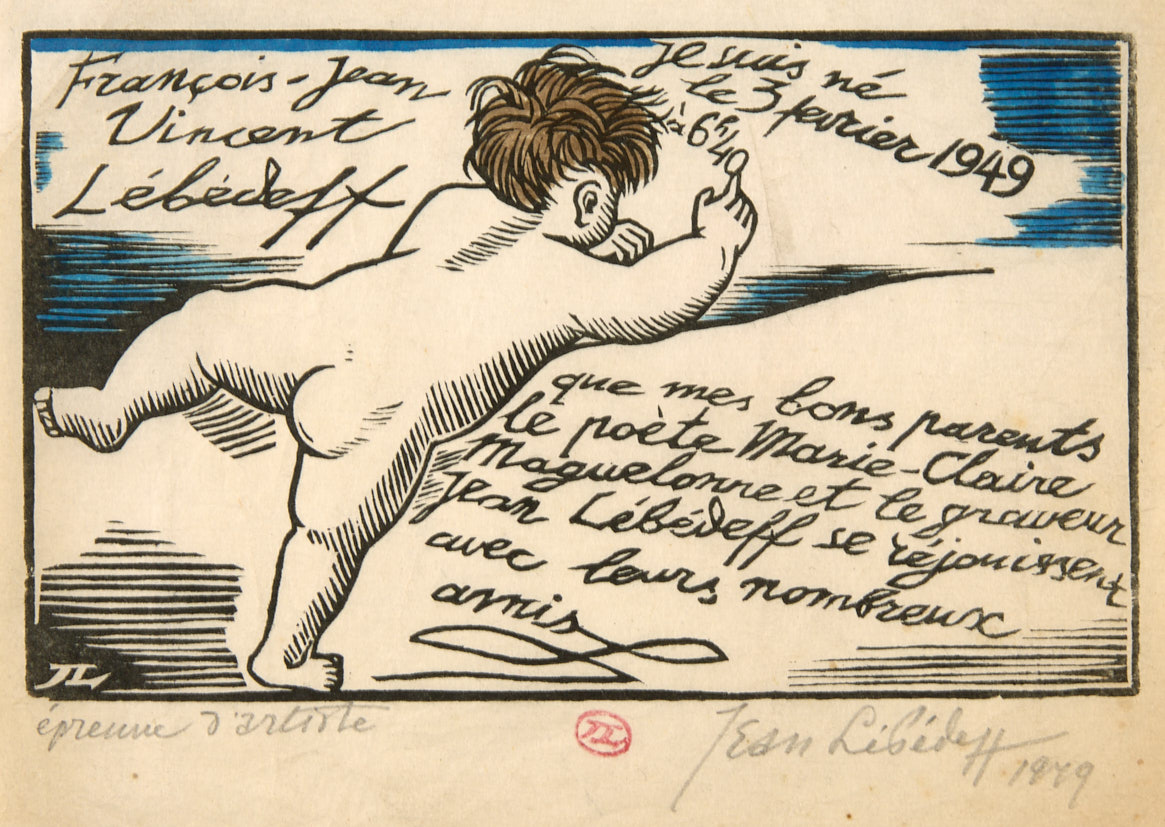 François-Jean
Vincent
Lébédeff
Je suis né
le 3 fevrier 1949
à 6h40
que mes bons parents
le poète Marie-Claire
Maguelonne et le graveur
Jean Lébédeff se réjouissent
avec leurs nombreux
amis
JL
épreuve d'artiste
JL
Jean Lébédeff
1949